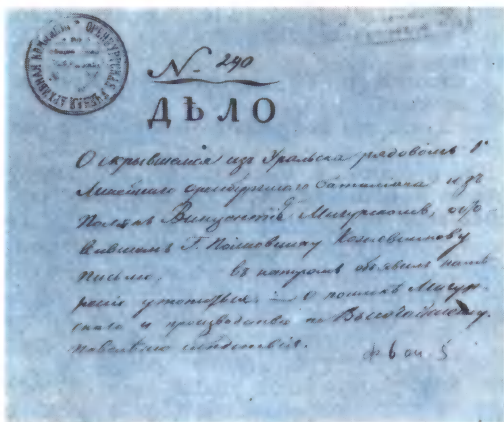 ОРЕНБУРГСКАЯ УЧЕНАЯ АРХИВНАЯ
N. 240
ДѢЛО
О скрывшемся изъ Уральска рядовомъ 1
Линейнаго оренбургскаго баталiона изъ
Поляк Винцентiѣ Мигурскомъ, оста-
вившемъ Г. Полковнику Кожевникову
письмо. въ которомъ объявилъ намѣ-
ренiе утопиться. — О поискѣ Мигур-
скаго и производствѣ по Высочайшему
повелѣнiю слѣдствiя.
ф 6 оп. 5